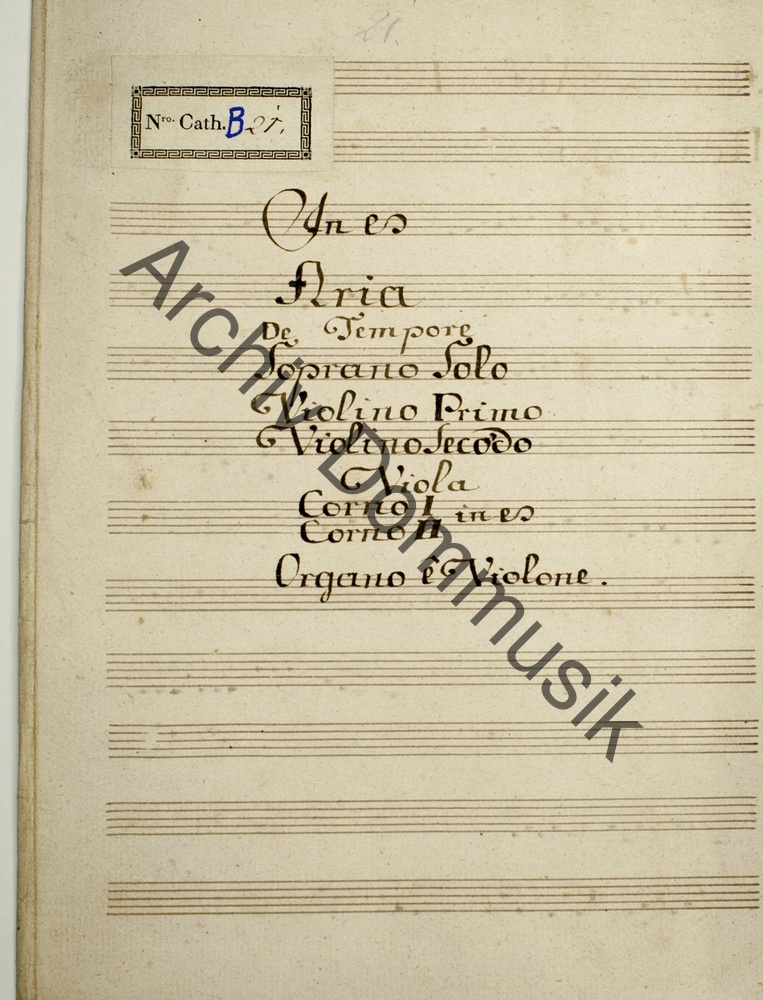 21.
Nro. Cath. B 21.
In es
Aria
De Tempore
Soprano Solo
Violino Primo
Violino Secōdo
Viola
Corno I in es
Corno II
Organo è Violone.
Archiv Dommusik